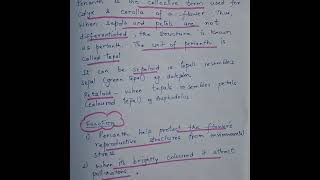 Perianth is the collective term used for
calyx & corolla of a flower. Also,
when sepals and petals are not
differentiated, the structure is known
as perianth. The unit of perianth is
called tepal
It can be sepaloid ie tepals resembles
sepal (green tepal) eg
Petaloid - when tepals resembles petals
(coloured tepal) eg Asphodelus
Function
1) Perianth help protect the flower's
reproductive structures from environmental
stress
2) When its brightly coloured it attract
pollinators.